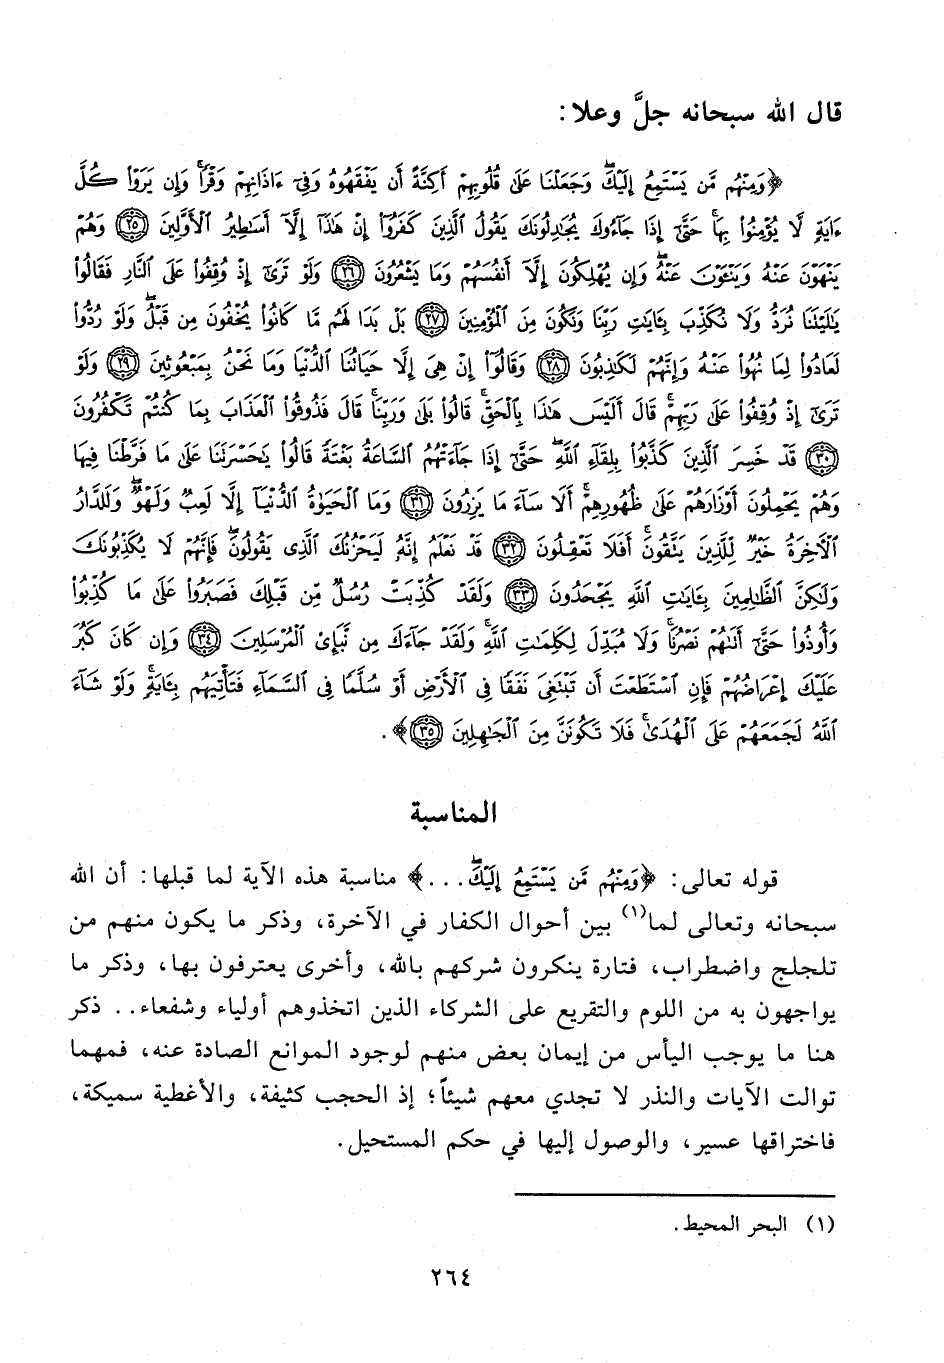 قال الله سبحانه جلَّ وعلا:
﴿وَمِنْهُم مَّن يَسْتَمِعُ إِلَيْكَ ۖ وَجَعَلْنَا عَلَىٰ قُلُوبِهِمْ أَكِنَّةً أَن يَفْقَهُوهُ وَفِىٓ ءَاذَانِهِمْ وَقْرًا ۚ وَإِن يَرَوْا۟ كُلَّ
ءَايَةٍ لَّا يُؤْمِنُوا۟ بِهَا ۚ حَتَّىٰٓ إِذَا جَآءُوكَ يُجَٰدِلُونَكَ يَقُولُ ٱلَّذِينَ كَفَرُوٓا۟ إِنْ هَٰذَآ إِلَّآ أَسَٰطِيرُ ٱلْأَوَّلِينَ ٢٥ وَهُمْ
يَنْهَوْنَ عَنْهُ وَيَنْـَٔوْنَ عَنْهُ ۖ وَإِن يُهْلِكُونَ إِلَّآ أَنفُسَهُمْ وَمَا يَشْعُرُونَ ٢٦ وَلَوْ تَرَىٰٓ إِذْ وُقِفُوا۟ عَلَى ٱلنَّارِ فَقَالُوا۟
يَٰلَيْتَنَا نُرَدُّ وَلَا نُكَذِّبَ بِـَٔايَٰتِ رَبِّنَا وَنَكُونَ مِنَ ٱلْمُؤْمِنِينَ ٢٧ بَلْ بَدَا لَهُم مَّا كَانُوا۟ يُخْفُونَ مِن قَبْلُ ۖ وَلَوْ رُدُّوا۟
لَعَادُوا۟ لِمَا نُهُوا۟ عَنْهُ وَإِنَّهُمْ لَكَٰذِبُونَ ٢٨ وَقَالُوٓا۟ إِنْ هِىَ إِلَّا حَيَاتُنَا ٱلدُّنْيَا وَمَا نَحْنُ بِمَبْعُوثِينَ ٢٩ وَلَوْ
تَرَىٰٓ إِذْ وُقِفُوا۟ عَلَىٰ رَبِّهِمْ ۚ قَالَ أَلَيْسَ هَٰذَا بِٱلْحَقِّ ۚ قَالُوا۟ بَلَىٰ وَرَبِّنَا ۚ قَالَ فَذُوقُوا۟ ٱلْعَذَابَ بِمَا كُنتُمْ تَكْفُرُونَ
٣٠ قَدْ خَسِرَ ٱلَّذِينَ كَذَّبُوا۟ بِلِقَآءِ ٱللَّهِ ۖ حَتَّىٰٓ إِذَا جَآءَتْهُمُ ٱلسَّاعَةُ بَغْتَةً قَالُوا۟ يَٰحَسْرَتَنَا عَلَىٰ مَا فَرَّطْنَا فِيهَا
وَهُمْ يَحْمِلُونَ أَوْزَارَهُمْ عَلَىٰ ظُهُورِهِمْ ۚ أَلَا سَآءَ مَا يَزِرُونَ ٣١ وَمَا ٱلْحَيَوٰةُ ٱلدُّنْيَآ إِلَّا لَعِبٌ وَلَهْوٌ ۖ وَلَلدَّارُ
ٱلْءَاخِرَةُ خَيْرٌ لِّلَّذِينَ يَتَّقُونَ ۗ أَفَلَا تَعْقِلُونَ ٣٢ قَدْ نَعْلَمُ إِنَّهُۥ لَيَحْزُنُكَ ٱلَّذِى يَقُولُونَ ۖ فَإِنَّهُمْ لَا يُكَذِّبُونَكَ
وَلَٰكِنَّ ٱلظَّٰلِمِينَ بِـَٔايَٰتِ ٱللَّهِ يَجْحَدُونَ ٣٣ وَلَقَدْ كُذِّبَتْ رُسُلٌ مِّن قَبْلِكَ فَصَبَرُوا۟ عَلَىٰ مَا كُذِّبُوا۟
وَأُوذُوا۟ حَتَّىٰٓ أَتَىٰهُمْ نَصْرُنَا ۚ وَلَا مُبَدِّلَ لِكَلِمَٰتِ ٱللَّهِ ۚ وَلَقَدْ جَآءَكَ مِن نَّبَإِى۟ ٱلْمُرْسَلِينَ ٣٤ وَإِن كَانَ كَبُرَ
عَلَيْكَ إِعْرَاضُهُمْ فَإِنِ ٱسْتَطَعْتَ أَن تَبْتَغِىَ نَفَقًا فِى ٱلْأَرْضِ أَوْ سُلَّمًا فِى ٱلسَّمَآءِ فَتَأْتِيَهُم بِـَٔايَةٍ ۚ وَلَوْ شَآءَ
ٱللَّهُ لَجَمَعَهُمْ عَلَى ٱلْهُدَىٰ ۚ فَلَا تَكُونَنَّ مِنَ ٱلْجَٰهِلِينَ ٣٥﴾.
المناسبة
قوله تعالى: ﴿وَمِنْهُم مَّن يَسْتَمِعُ إِلَيْكَ ۖ...﴾ مناسبة هذه الآية لما قبلها: أن الله
سبحانه وتعالى لما(١) بين أحوال الكفار في الآخرة، وذكر ما يكون منهم من
تلجلج واضطراب، فتارة ينكرون شركهم بالله، وأخرى يعترفون بها، وذكر ما
يواجهون به من اللوم والتقريع على الشركاء الذين اتخذوهم أولياء وشفعاء.. ذكر
هنا ما يوجب اليأس من إيمان بعض منهم لوجود الموانع الصادة عنه، فمهما
توالت الآيات والنذر لا تجدي معهم شيئاً؛ إذ الحجب كثيفة، والأغطية سميكة،
فاختراقها عسير، والوصول إليها في حكم المستحيل.
(١) البحر المحيط.
٢٦٤